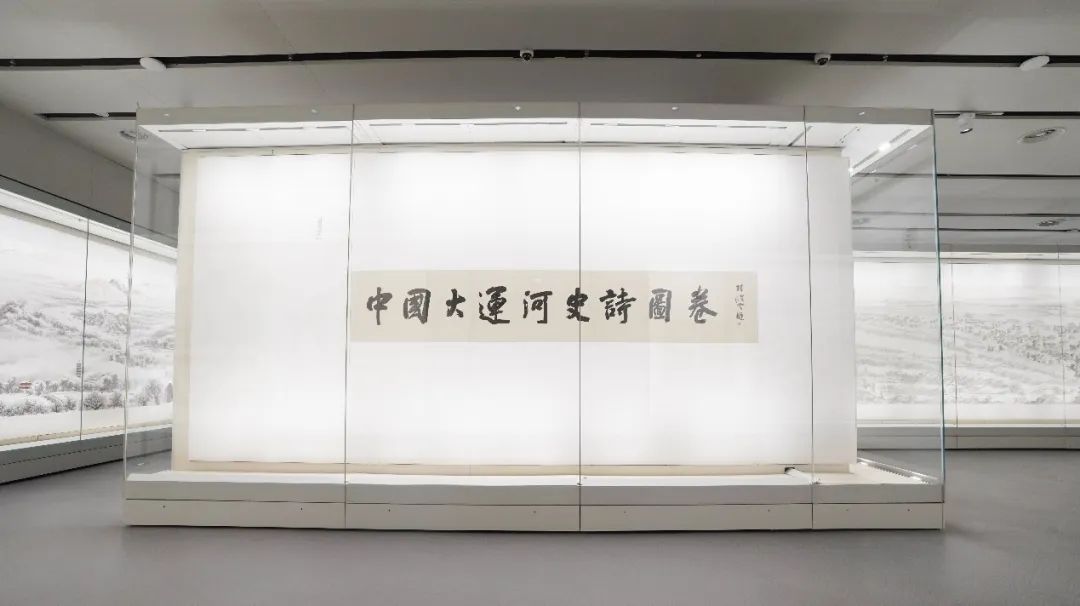 中國大運河史詩圖卷